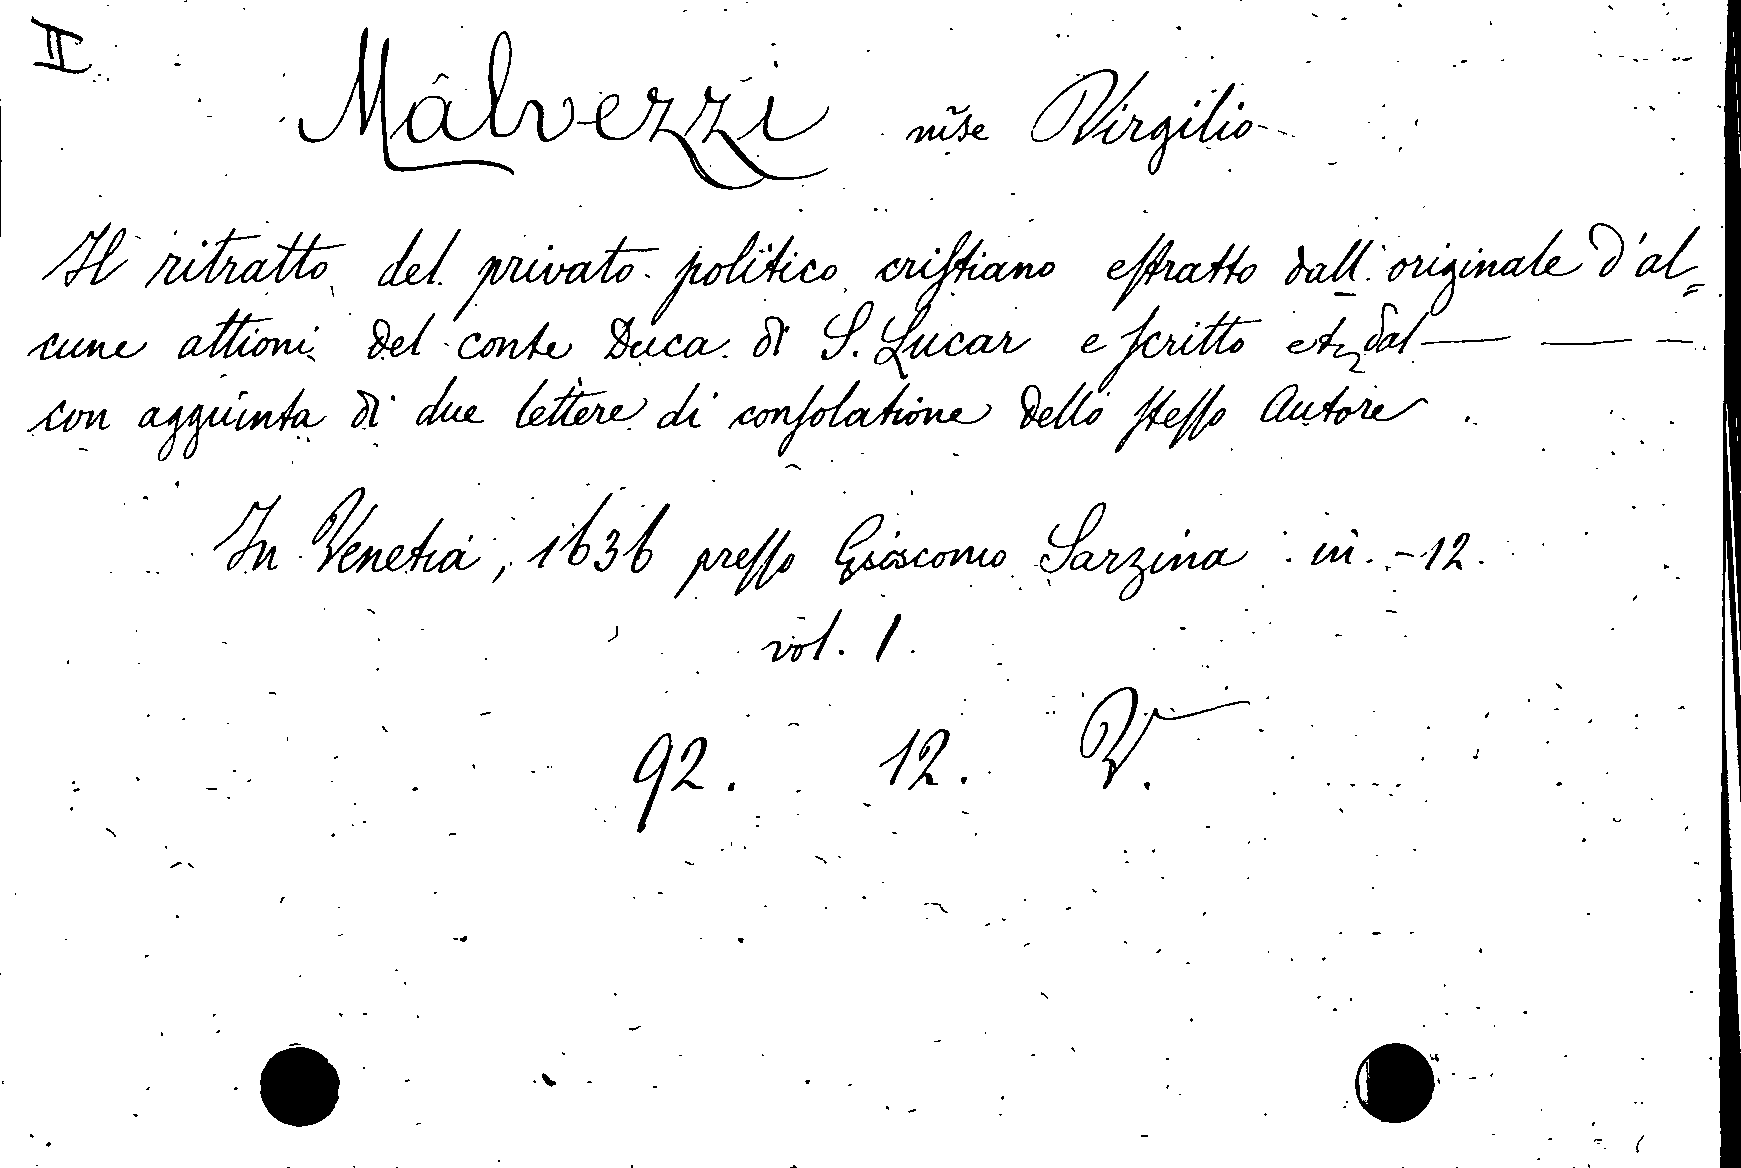 II
Malvezzi mse Virgilio
Il ritratto del privato politico criſtiano eſtratto dall' originale d'al=
cune attioni del conte Duca di S. Lucar e ſcritto dal — — —
con aggiunta di due lettere di conſolatione dello ſteſſo Autore
In Venetia, 1636 preſſo Giacomo Sarzina in-12.
vol. 1.
92. 12. V.